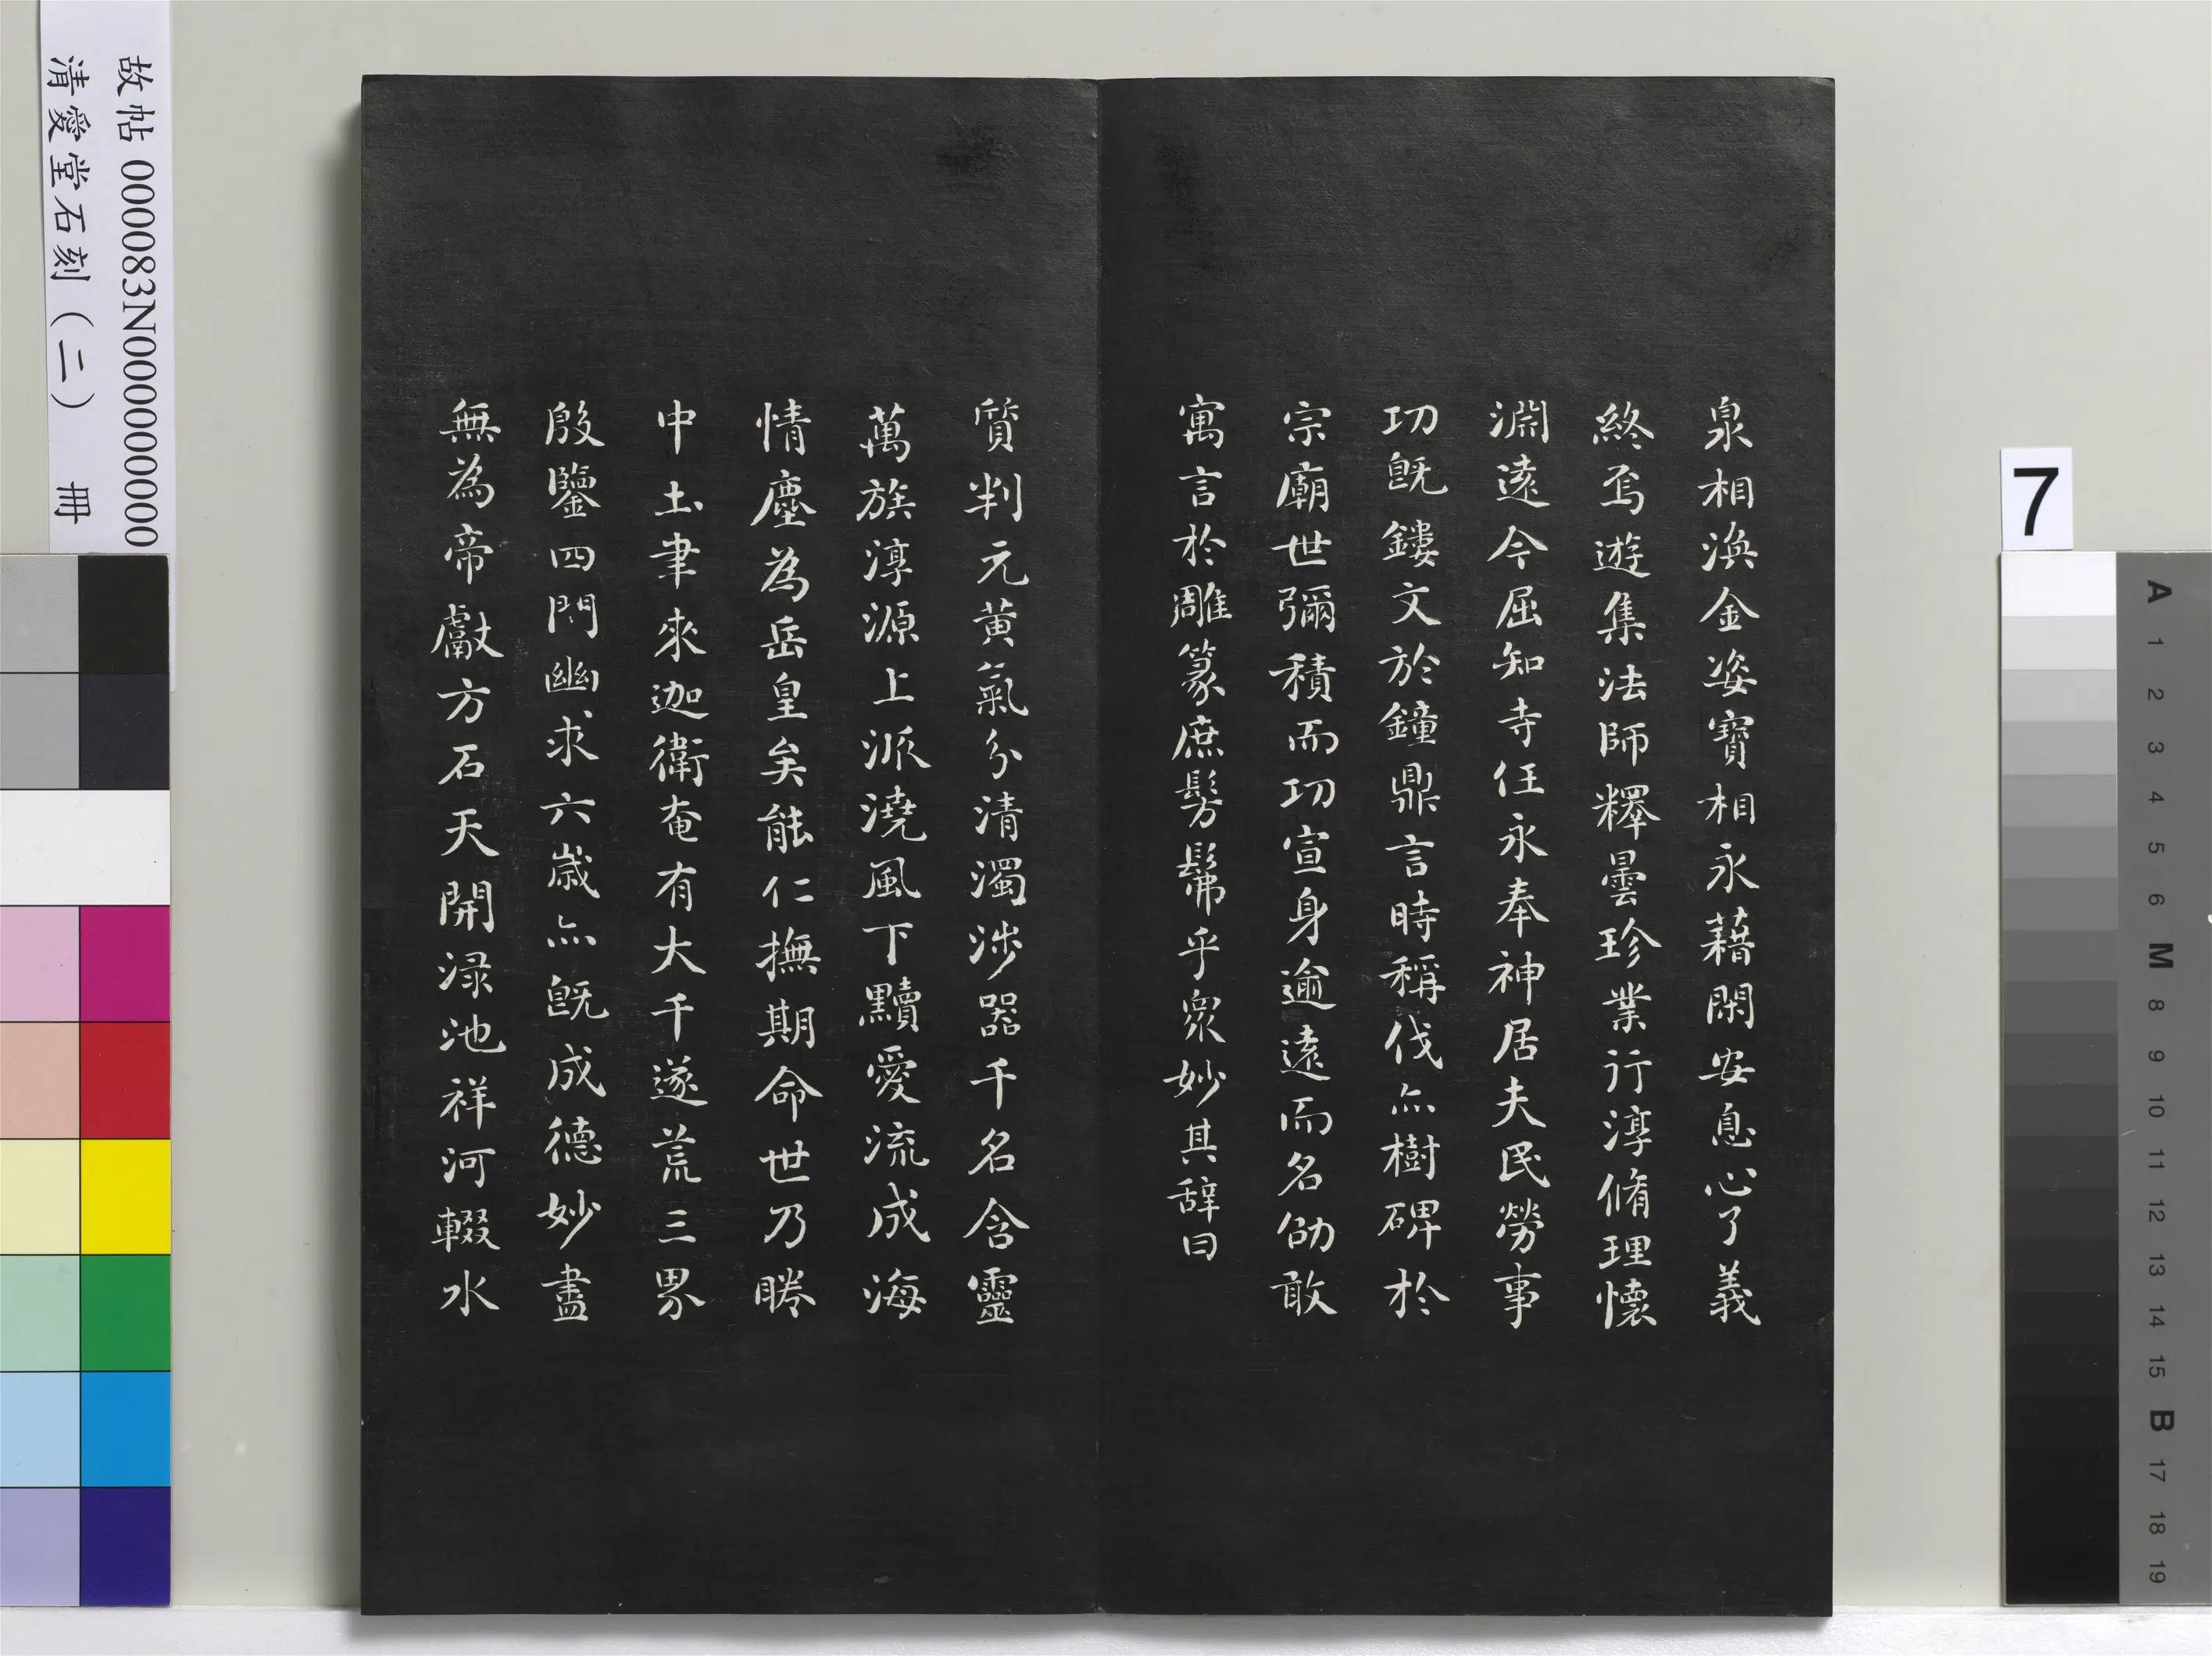 泉相渙金姿寶相永藉閑安息心了義
終焉遊集法師釋曇珍業行淳脩理懷
淵遠今屈知寺任永奉神居夫民勞事
功既鏤文於鐘鼎言時稱伐亦樹碑於
宗廟世彌積而功宣身逾遠而名劭敢
寓言於雕篆庶髣髴乎衆妙其辭曰
質判元黄氣分清濁涉器千名含靈
萬族淳源上派澆風下黷愛流成海
情塵為岳皇矣能仁撫期命世乃睠
中土聿來迦衛奄有大千遂荒三界
殷鑒四門幽求六歲亦既成德妙盡
無為帝獻方石天開渌池祥河輟水
故帖 000083N000000000
清愛堂石刻（二） 冊
7
A
1
2
3
4
5
6
M
8
9
10
11
12
13
14
15
B
17
18
19